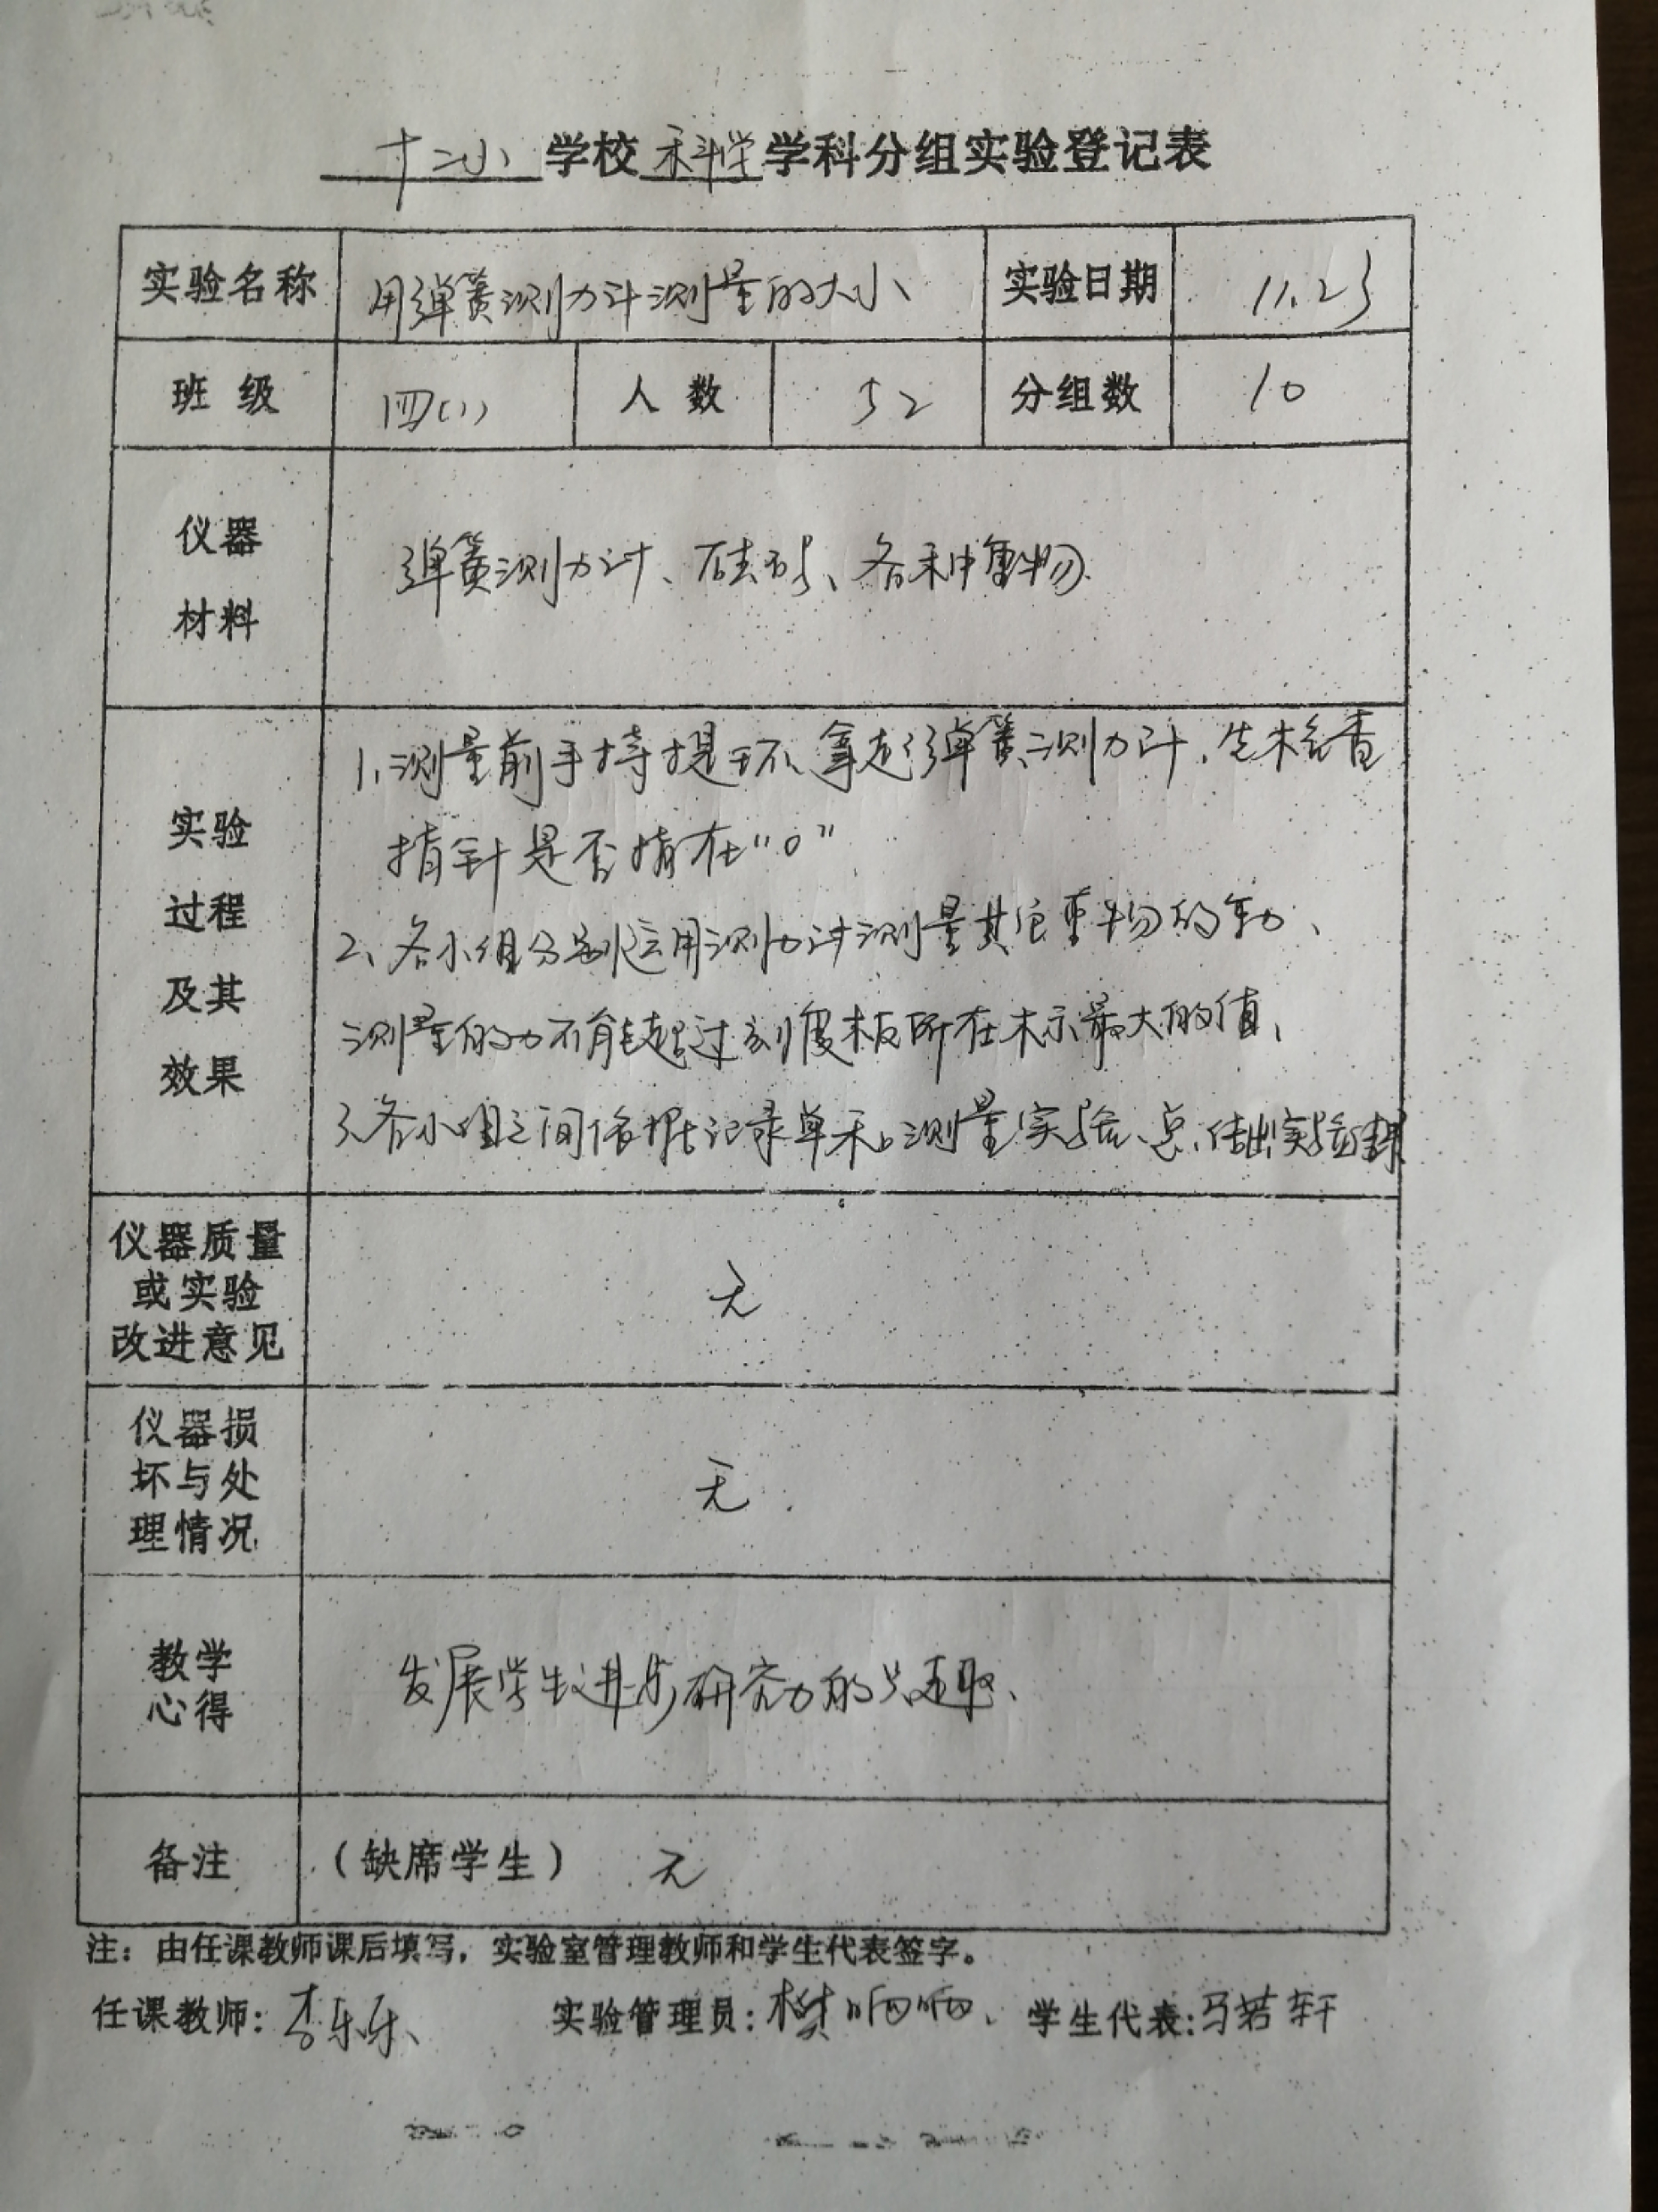 十二小 学校 科学 学科分组实验登记表
实验名称 用弹簧测力计测量的大小 实验日期 11.23
班 级 四(1) 人 数 52 分组数 10
仪器
材料
弹簧测力计、砝码、各种重物.
实验
过程
及其
效果
1、测量前手持提环、拿起弹簧测力计,先检查
指针是否指在“0”
2、各小组分别运用测力计测量其它重物的重力、
测量的力不能超过刻度板所在标示最大的值、
3、各小组之间依据记录单和测量实验、总结出实验结果
仪器质量
或实验
改进意见
无
仪器损
坏与处
理情况
无.
教学
心得
发展学生进一步研究力的兴趣、
备注 (缺席学生) 无
注:由任课教师课后填写,实验室管理教师和学生代表签字。
任课教师:李乐乐、 实验管理员:樊响响、 学生代表:马若轩